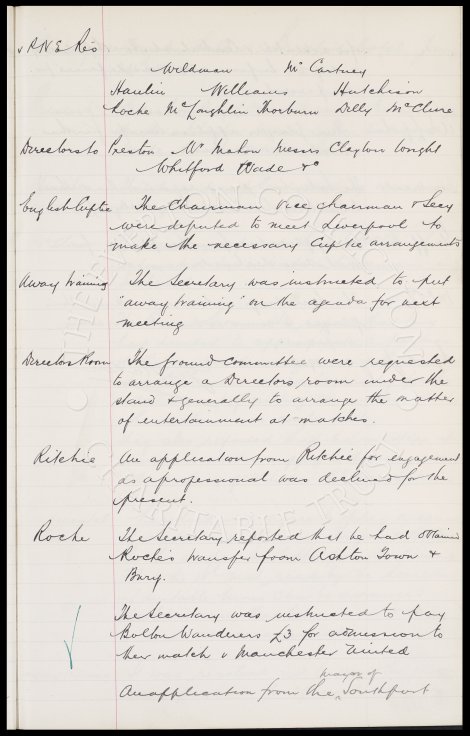 v P.N.E. Res
Wildman McCartney
Hanlin Williams Hutchison
Roche McLoughlin Thorburn Dilly McClure
Directors to Preston Mr Mahon Messrs Clayton Wright
Whitford Wade &c
English Cuptie The Chairman Vice Chairman & Secy
were deputed to meet Liverpool to
make the necessary Cuptie arrangements
Away training The Secretary was instructed to put
"away training" on the agenda for next
meeting
Directors Room The ground Committee were requested
to arrange a Directors room under the
stand & generally to arrange the matter
of entertainment at matches.
Ritchie An application from Ritchie for engagement
as a professional was declined for the
present.
Roche The Secretary reported that he had obtained
Roche's transfer from Ashton Town &
Bury.
The Secretary was instructed to pay
Bolton Wanderers £3 for admission to
their match v Manchester United
mayor of
An application from the Southport